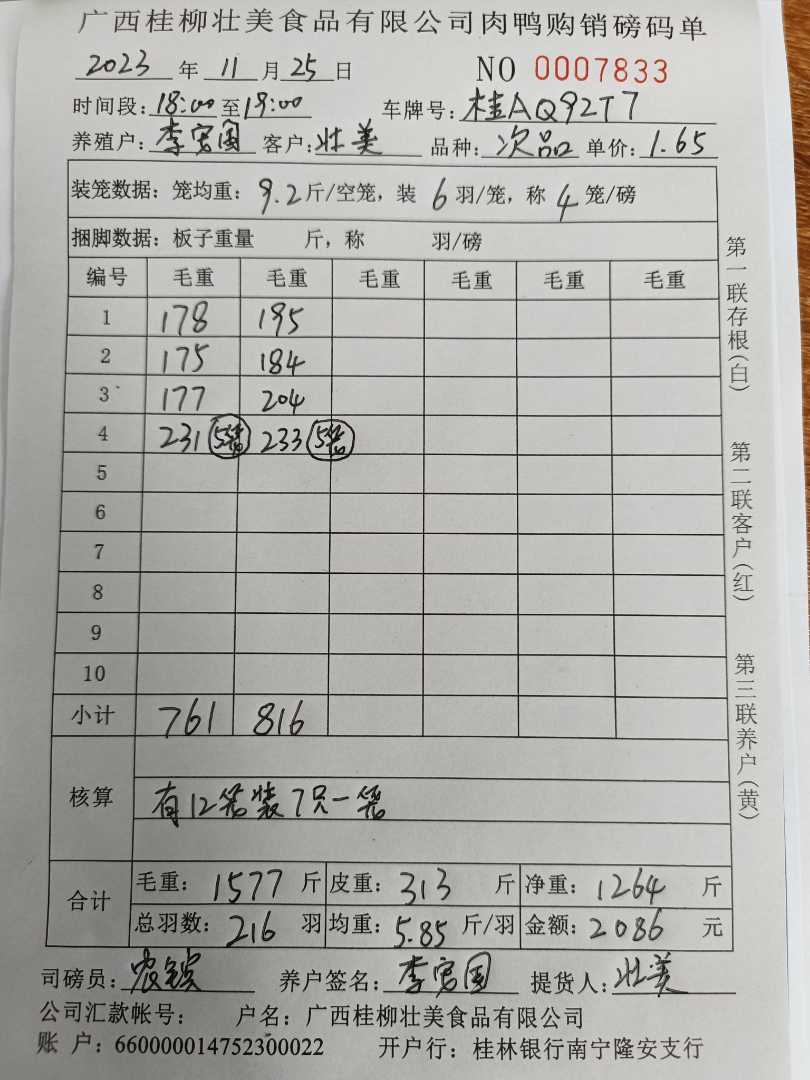 广西桂柳壮美食品有限公司肉鸭购销磅码单
2023 年 11 月 25 日 NO 0007833
时间段: 18:00 至 19:00 车牌号: 桂AQ92T7
养殖户: 李宏国 客户: 壮美 品种: 次品 单价: 1.65
装笼数据: 笼均重: 9.2 斤/空笼, 装 6 羽/笼, 称 4 笼/磅
捆脚数据: 板子重量 斤, 称 羽/磅
编号 毛重 毛重 毛重 毛重 毛重 毛重
1 178 195
2 175 184
3 177 204
4 231 5笼 233 5笼
5
6
7
8
9
10
小计 761 816
核算 有12笼装7只一笼
合计 毛重: 1577 斤 皮重: 313 斤 净重: 1264 斤
总羽数: 216 羽 均重: 5.85 斤/羽 金额: 2086 元
司磅员: 养户签名: 李宏国 提货人: 壮美
公司汇款帐号: 户名: 广西桂柳壮美食品有限公司
账 户: 660000014752300022 开户行: 桂林银行南宁隆安支行
第一联存根(白) 第二联客户(红) 第三联养户(黄)